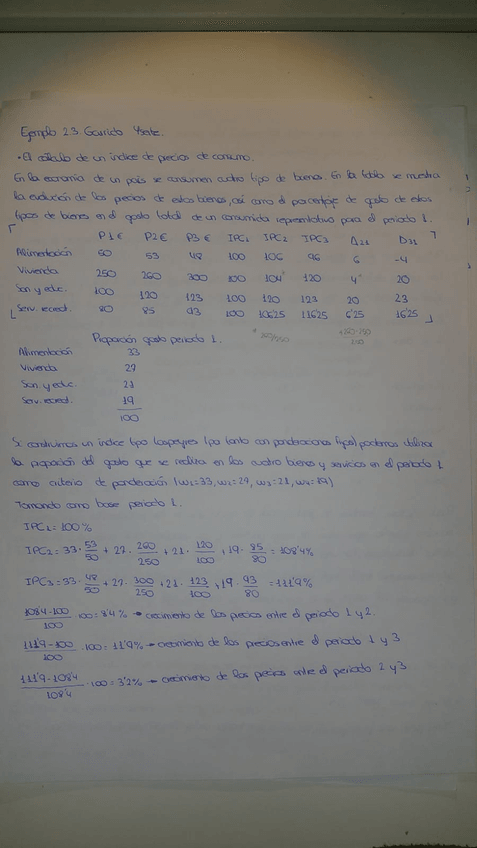 Ejemplo 2.3. Garrido Yserte.
• El cálculo de un índice de precios de consumo.
En la economía de un país se consumen cuatro tipo de bienes. En la tabla se muestra
la evolución de los precios de estos bienes, así como el porcentaje de gasto de estos
tipos de bienes en el gasto total de un consumidor representativo para el periodo 1.
P1 € P2 € P3 € IPC1 IPC2 IPC3 Δ21 Δ31
Alimentación 50 53 48 100 106 96 6 -4
Vivienda 250 260 300 100 104* 120 4* 20
San y educ. 100 120 123 100 120 123 20 23
Serv. recreat. 80 85 93 100 106'25 116'25 6'25 16'25
* 260/250 * 260-250/250
Proporción gasto periodo 1.
Alimentación 33
Vivienda 27
San. y educ. 21
Serv. recreat. 19
100
Si construimos un índice tipo Laspeyres (por tanto con ponderaciones fijas) podemos utilizar
la proporción del gasto que se realiza en los cuatro bienes y servicios en el periodo 1
como criterio de ponderación (w1=33, w2=27, w3=21, w4=19)
Tomando como base periodo 1.
IPC1 = 100%
IPC2 = 33· 53/50 + 27· 260/250 + 21· 120/100 + 19· 85/80 = 108'4%
IPC3 = 33· 48/50 + 27· 300/250 + 21· 123/100 + 19· 93/80 = 111'9%
108'4-100/100 ·100 = 8'4% → crecimiento de los precios entre el periodo 1 y 2.
111'9-100/100 ·100 = 11'9% → crecimiento de los precios entre el periodo 1 y 3
111'9-108'4/108'4 ·100 = 3'2% → crecimiento de los precios entre el periodo 2 y 3